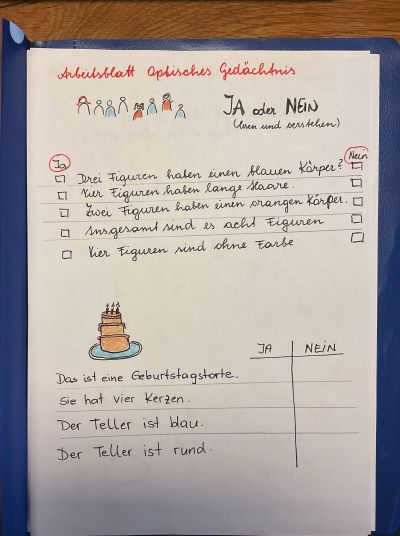 Arbeitsblatt Optisches Gedächtnis
JA oder NEIN
(lesen und verstehen)
Ja
Nein
Drei Figuren haben einen blauen Körper?
Vier Figuren haben lange Haare.
Zwei Figuren haben einen orangen Körper.
Insgesamt sind es acht Figuren
Vier Figuren sind ohne Farbe
JA NEIN
Das ist eine Geburtstagstorte.
Sie hat vier Kerzen.
Der Teller ist blau.
Der Teller ist rund.